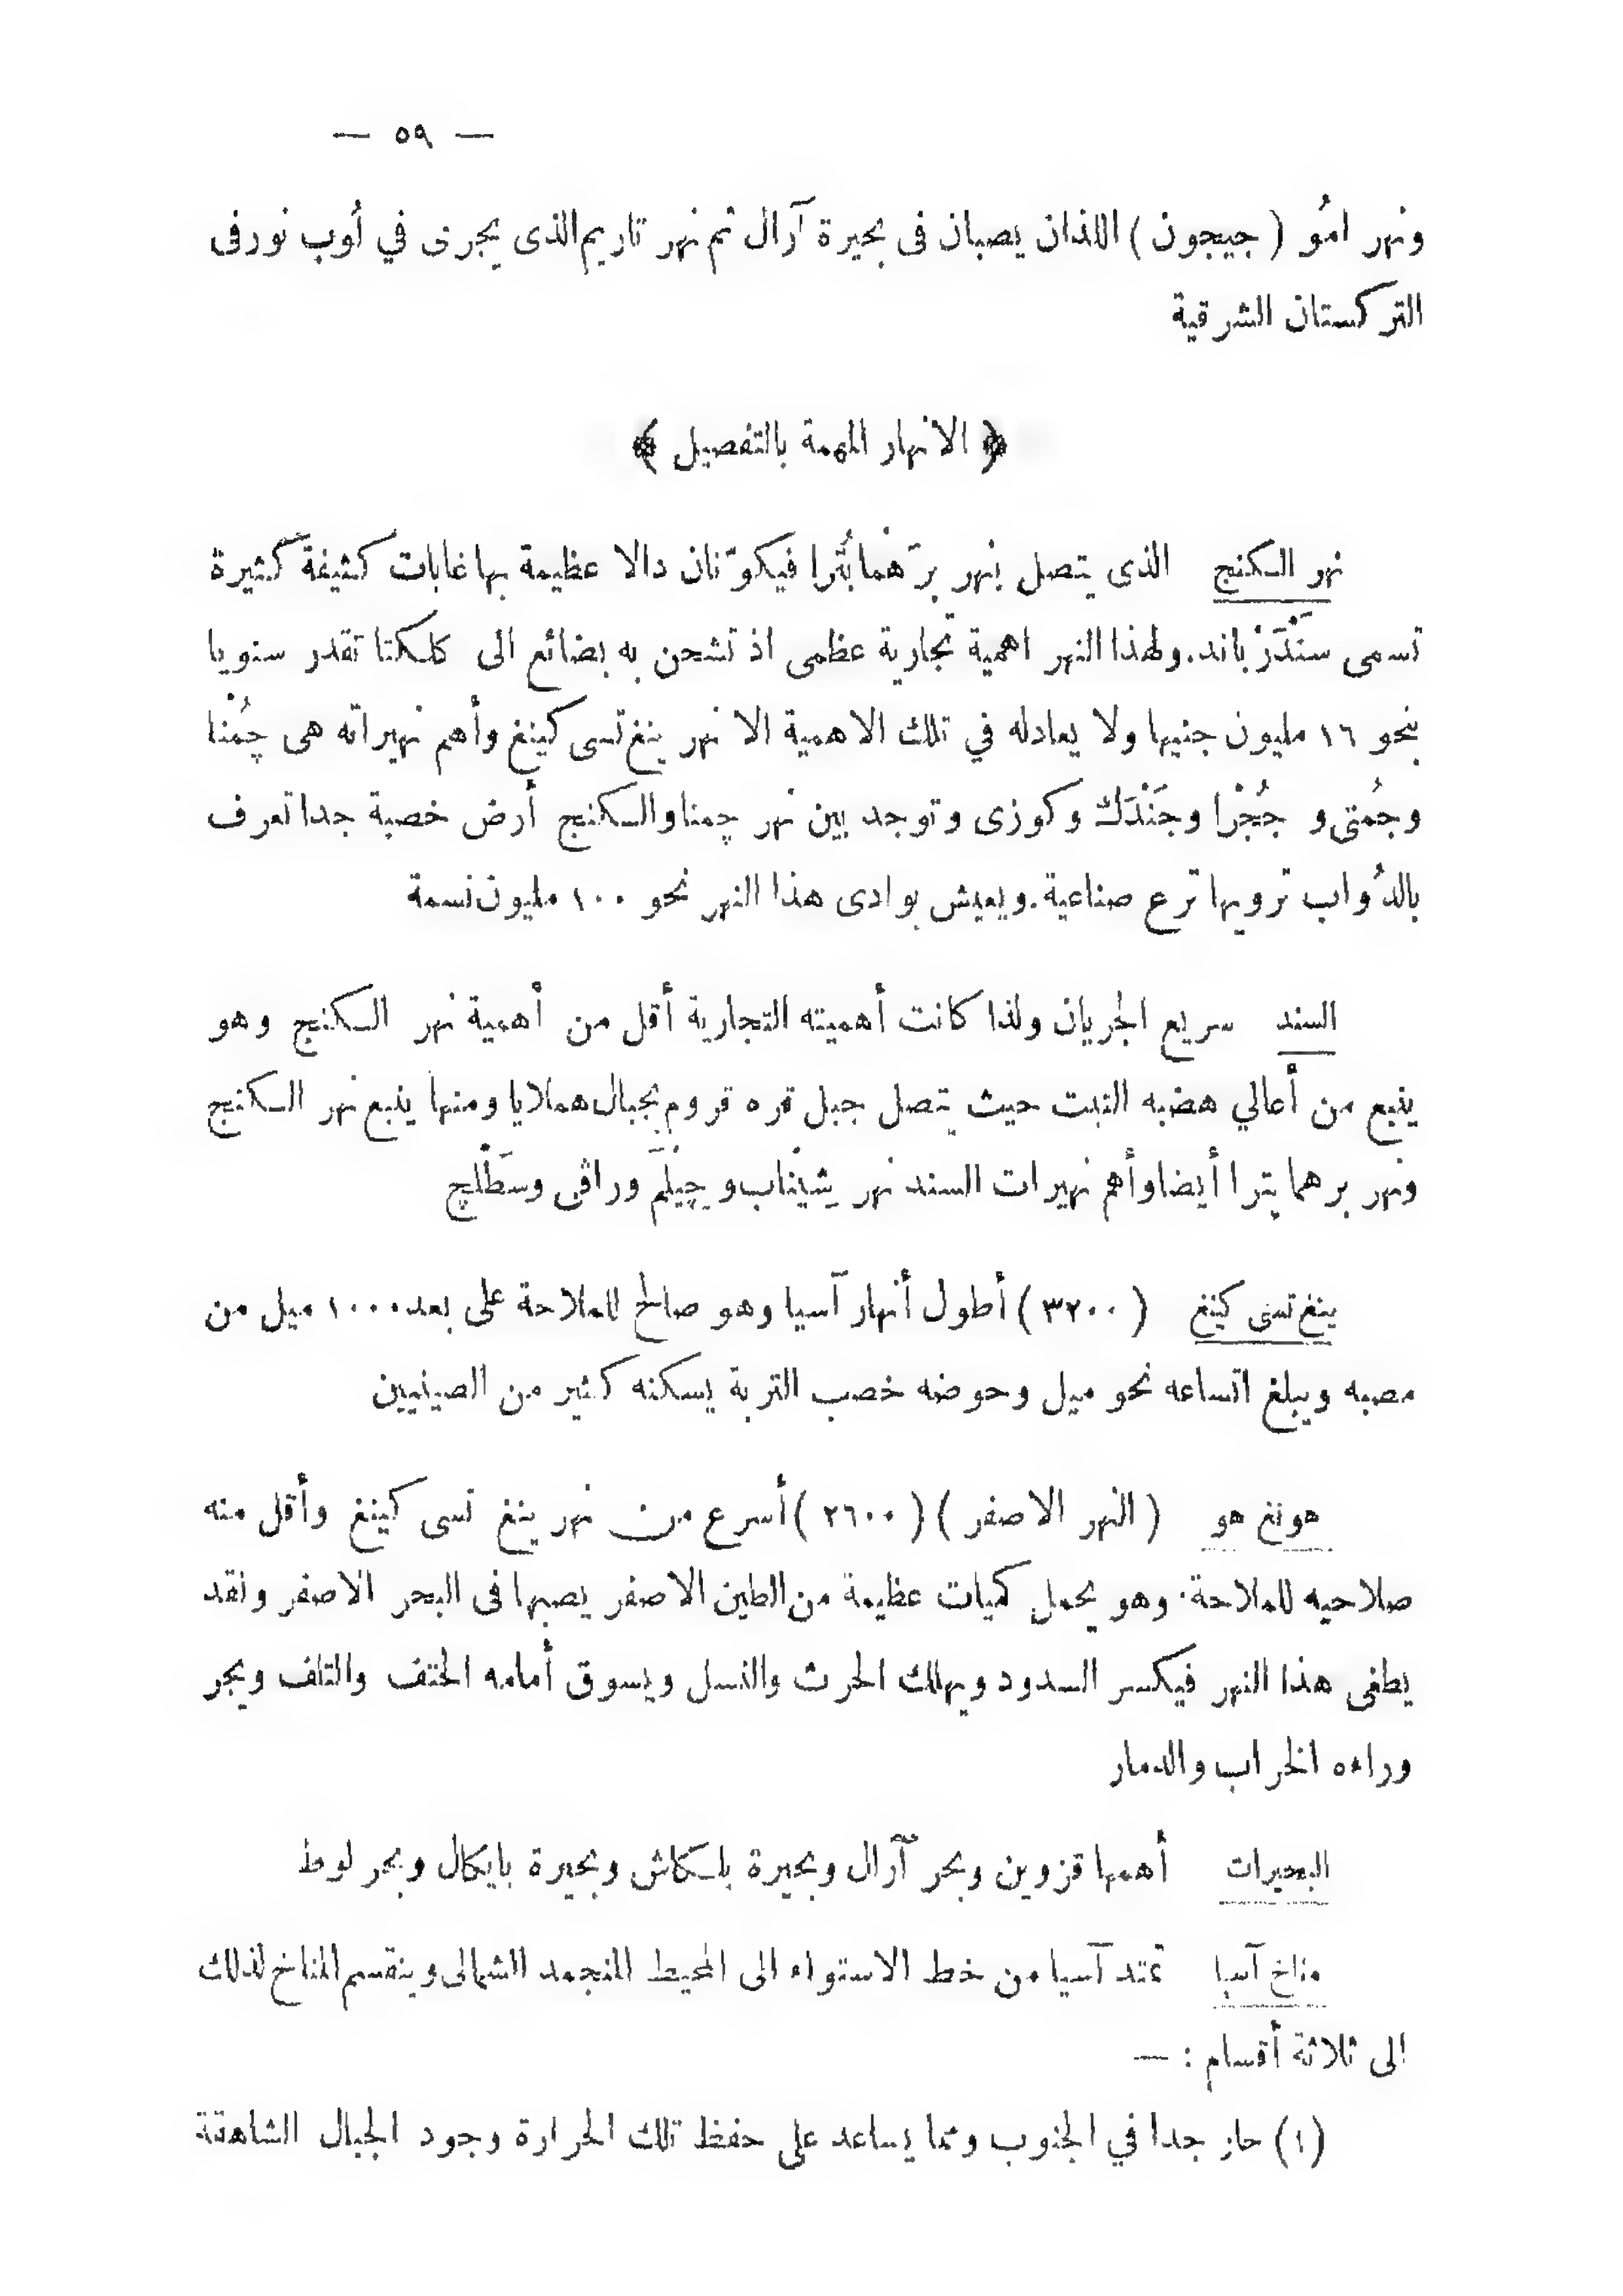 — ٥٩ —
ونهر امُو ( جيحون ) اللذان يصبان فى بحيرة آرال ثم نهر تاريم الذى يجرى في أوب نورفى
التركستان الشرقية
﴿ الانهار المهمة بالتفصيل ﴾
نهر الكنج الذى يتصل بنهر برَهْمابُتْرا فيكوّنان دالا عظيمة بها غابات كثيفة كثيرة
تسمى سَنْدَرْباند. ولهذا النهر اهمية تجارية عظمى اذ تشحن به بضائع الى كلكتا تقدر سنويا
بنحو ١٦ مليون جنيها ولا يعادله في تلك الاهمية الا نهر ينغ تسى كينغ وأهم نهيراته هى چُمْنا
وجُمتى و جُجْرا وجَنْدَك وكوزى وتوجد بين نهر چمنا والكنج أرض خصبة جدا تعرف
بالدُواب ترويها ترع صناعية. ويعيش بوادى هذا النهر نحو ١٠٠ مليون نسمة
السند سريع الجريان ولذا كانت أهميته التجارية أقل من أهمية نهر الكنج وهو
ينبع من أعالي هضبه التبت حيث يتصل جبل قره قروم بجبال هملايا ومنها ينبع نهر الكنج
ونهر برهما پترا أيضا وأهم نهيرات السند نهر شِيْناب و چِيْلَمْ وراڤى وسَطْلج
ينغ تسى كينغ ( ٣٢٠٠ ) أطول أنهار آسيا وهو صالح للملاحة على بعد ١٠٠٠ ميل من
مصبه ويبلغ اتساعه نحو ميل وحوضه خصب التربة يسكنه كثير من الصينيين
هونغ هو ( النهر الاصفر ) ( ٢٦٠٠ ) أسرع من نهر ينغ تسى كينغ وأقل منه
صلاحيه للملاحة. وهو يحمل كميات عظيمة من الطين الاصفر يصبها فى البحر الاصفر ونقد
يطغى هذا النهر فيكسر السدود ويهلك الحرث والنسل ويسوق أمامه الحتف والتلف ويجر
وراءه الخراب والدمار
البحيرات أهمها قزوين وبحر آرال وبحيرة بلكاش وبحيرة بايكال وبحر لوط
مناخ آسيا تمتد آسيا من خط الاستواء الى المحيط المنجمد الشمالى وينقسم المناخ لذلك
الى ثلاثة أقسام : —
(١) حار جدا في الجنوب ومما يساعد على حفظ تلك الحرارة وجود الجبال الشاهقة